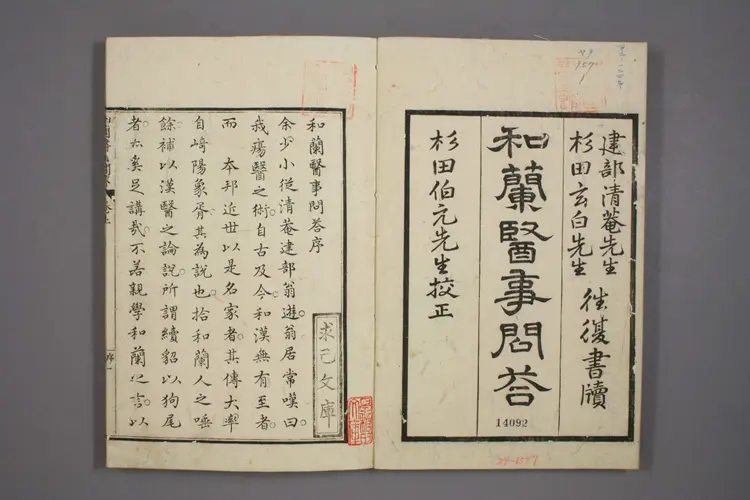 建部清菴先生
杉田玄白先生
往復書牘
和蘭醫事問荅
杉田伯元先生挍正
14092
和蘭醫事問荅序
余少小從清菴建部翁遊。翁居常嘆曰。
我瘍醫之術。自古及今。和漢無有至者。
而 本邦近世以是名家者。其傳大率
自﨑陽象胥。其為說也。拾和蘭人之唾
餘。補以漢醫之論說。所謂續貂以狗尾
者。亦奚足講哉。不若親學和蘭之言。以
求己文庫